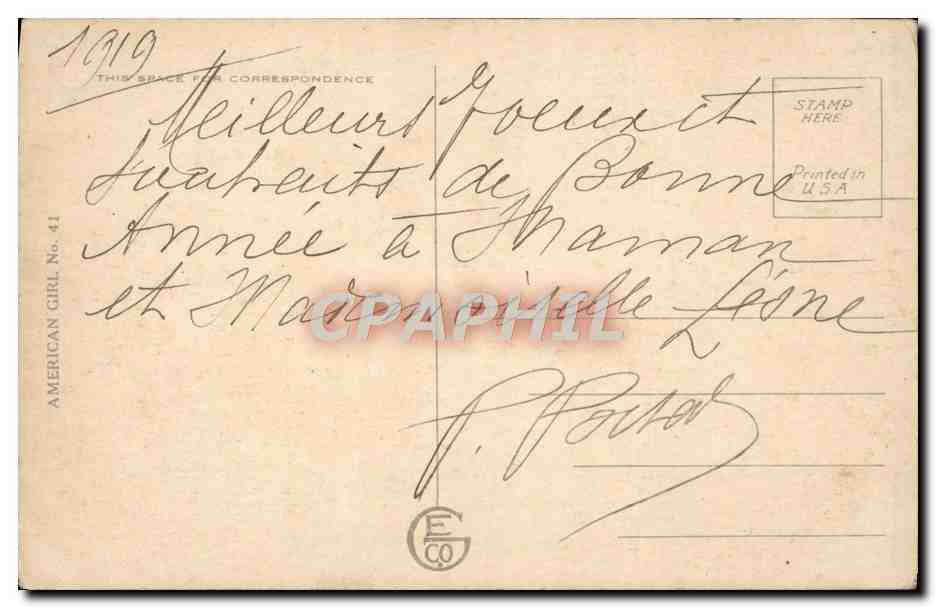 1919
THIS SPACE FOR CORRESPONDENCE
Meilleurs Voeux et
Souhaits de Bonne
Année à Maman
et Mademoiselle Lésne
P.
STAMP
HERE
Printed in
U.S.A
AMERICAN GIRL No. 41
CPAPHIL
E G CO.